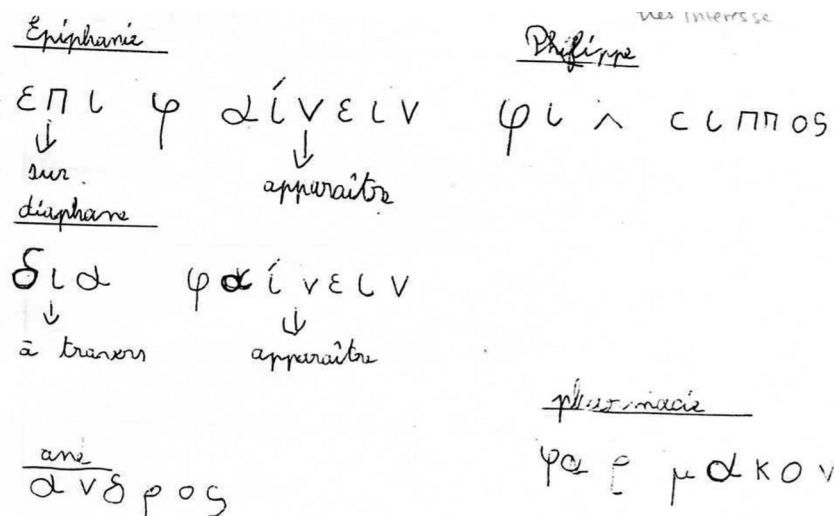 très intéressé
Epiphanie
επι φαίνειν
sur
apparaître
diaphane
δια φαίνειν
à travers
apparaître
ane
ανδρος
Philippe
φιλ ειππος
pharmacie
φαρμακον